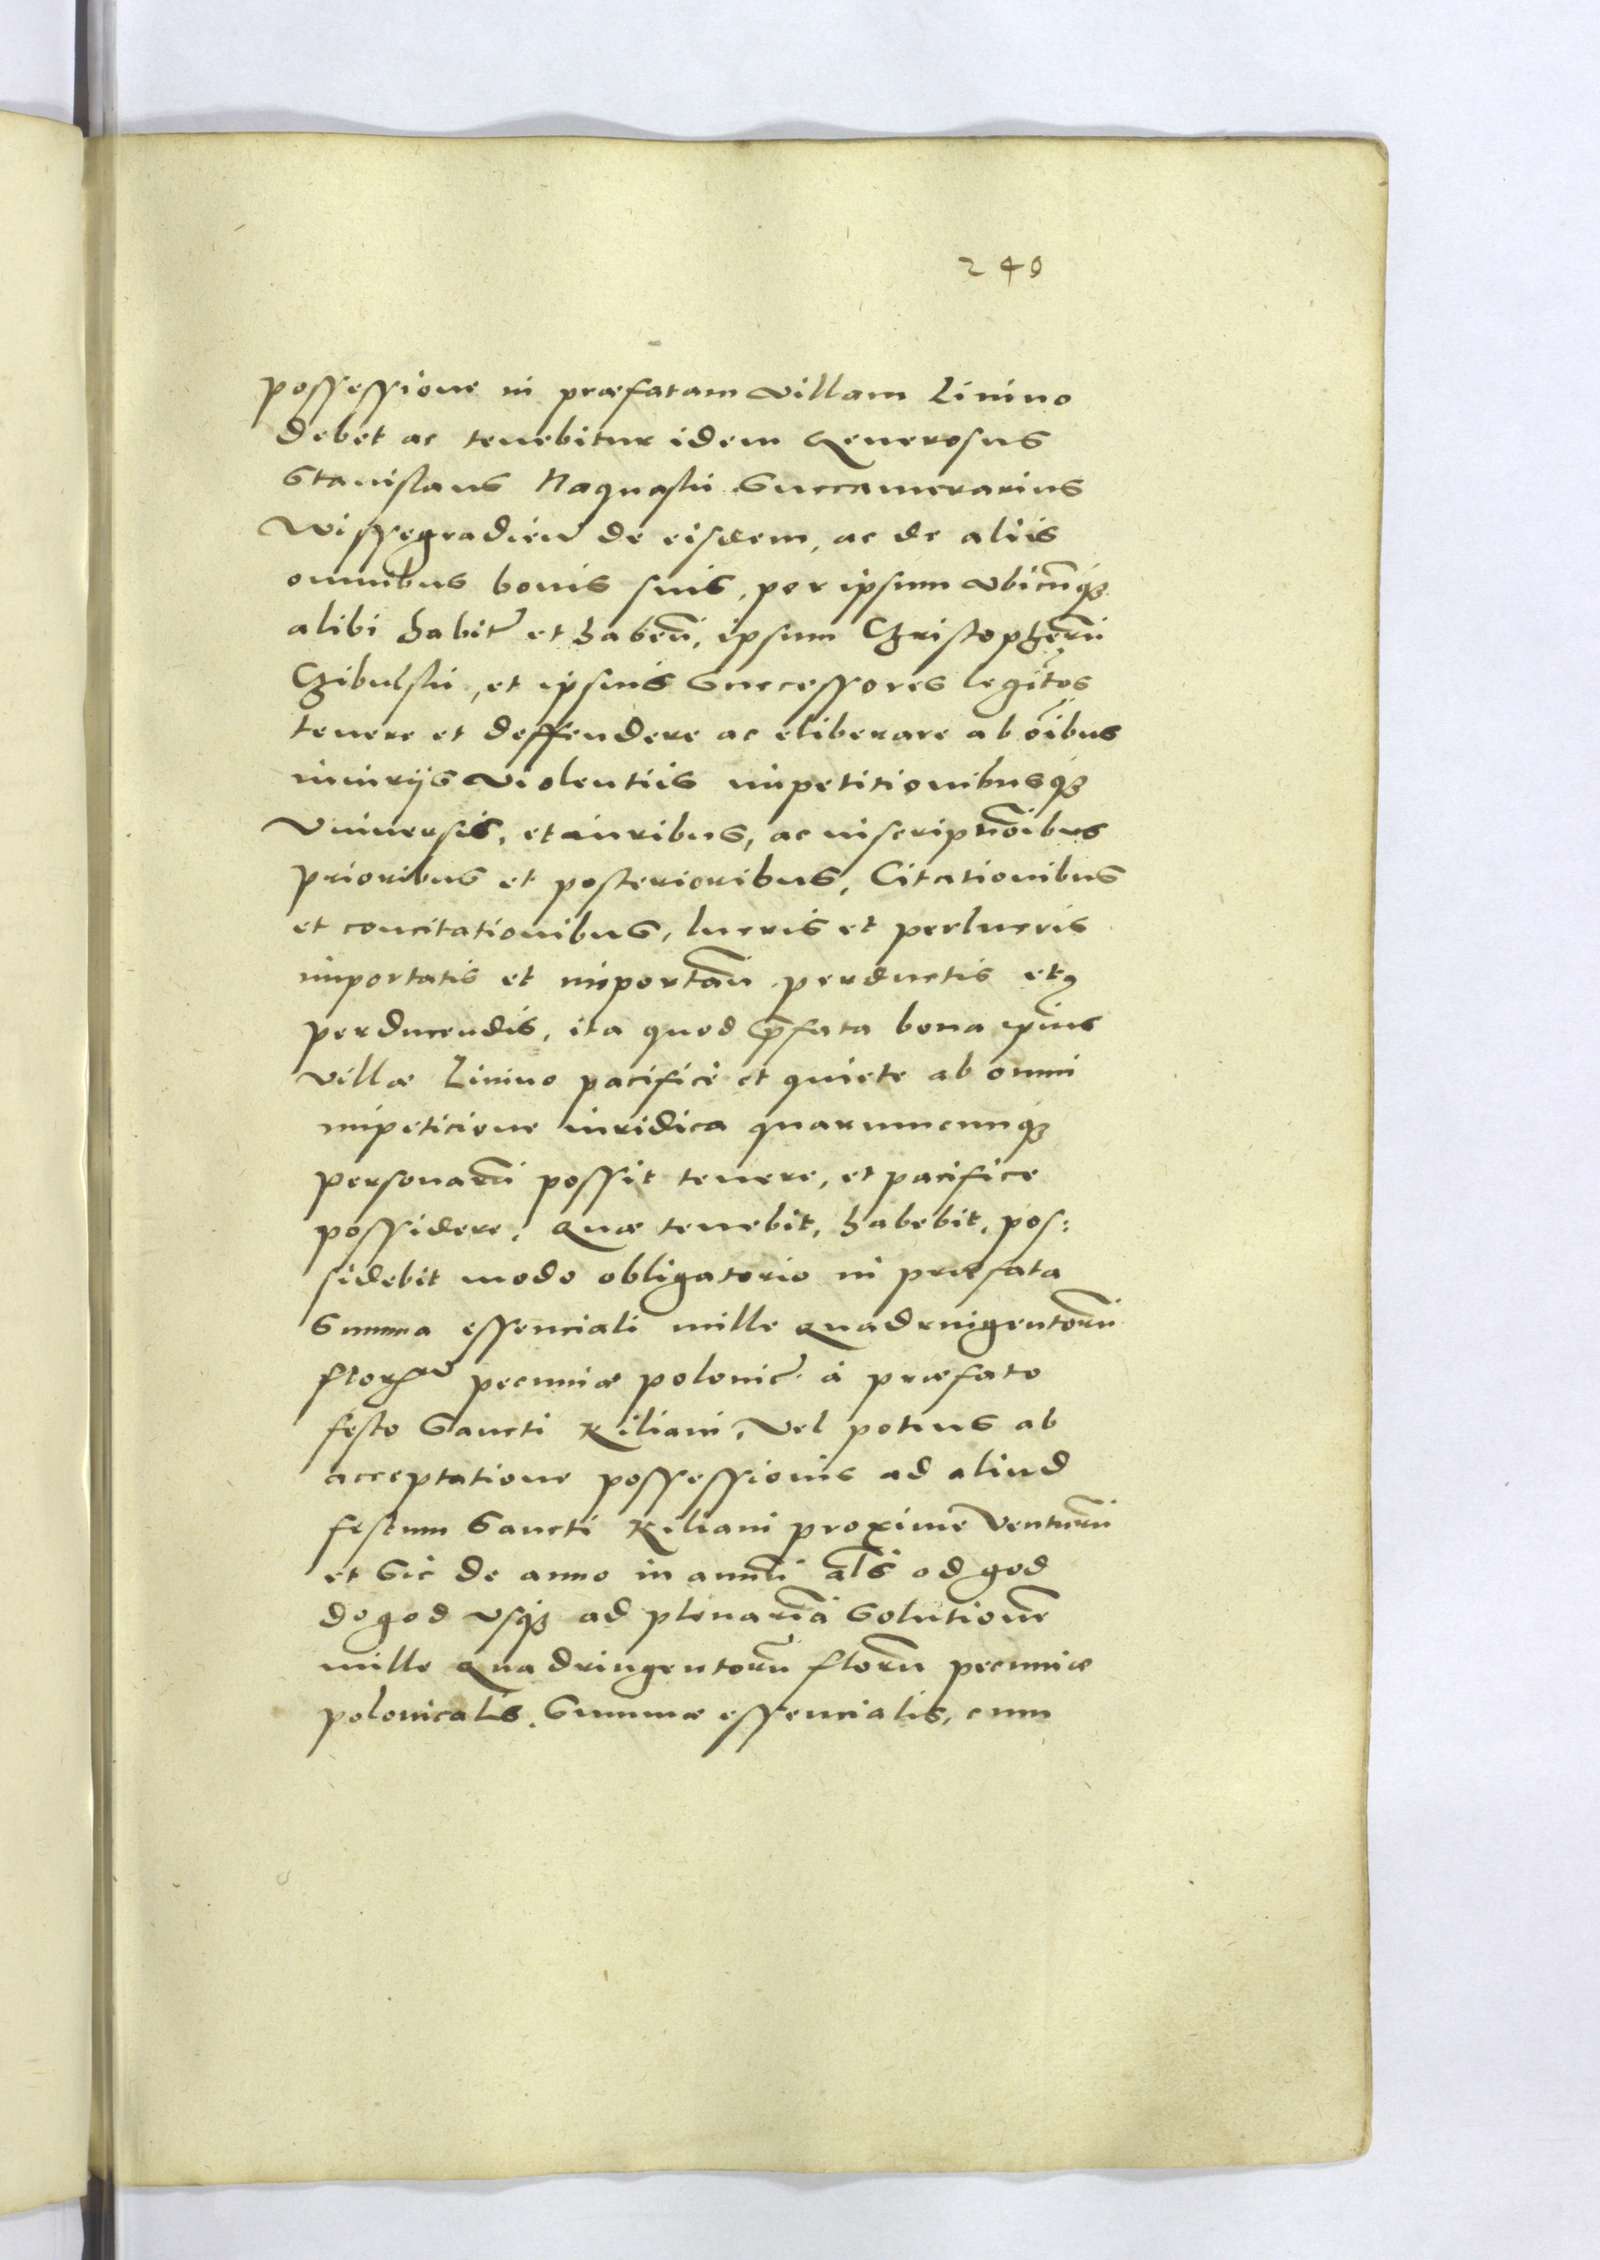 240
possessione in præfatam villam Linino
debet ac tenebitur idem Generosus
Stanislaus Naqnasky Succamerarius
Wissegradien̄ de eisdem, ac de aliis
omnibus bonis suis, per ipsum ubicūq3
alibi habit̄ et habeñ, ipsum Christopherū
Chibulsky, et ipsius Successores legit̃os
tenere et deffendere ac eliberare ab oībus
iniurijs violentiis impetitionibusq3
Vniuersis, et iuribus, ac inscriptōibus
prioribus et posterioribus, Citationibus
et concitationibus, lucris et perlucris
importatis et importañ perductis et
perducendis, ita quod p̄fata bona ip̄ius
villæ Linino pacificè et quiete ab omni
impeticione iuridica quarumcunq3
personarū possit tenere, et pacifice
possidere, Quæ tenebit, habebit, pos:
sidebit modo obligatorio in præfata
Summa essenciali mille quadringentorū
flor pecuniæ polonic̄ à præfato
festo Sancti Kiliani, Vel potius ab
acceptatione possessionis ad aliud
festum Sancti Kiliani proxime Venturū
et Sic de anno in annū al̄s od god
do god usq3 ad plenariā Solutionē
mille Quadringentorū florū pecuniæ
polonicalis, Summæ essencialis, cum